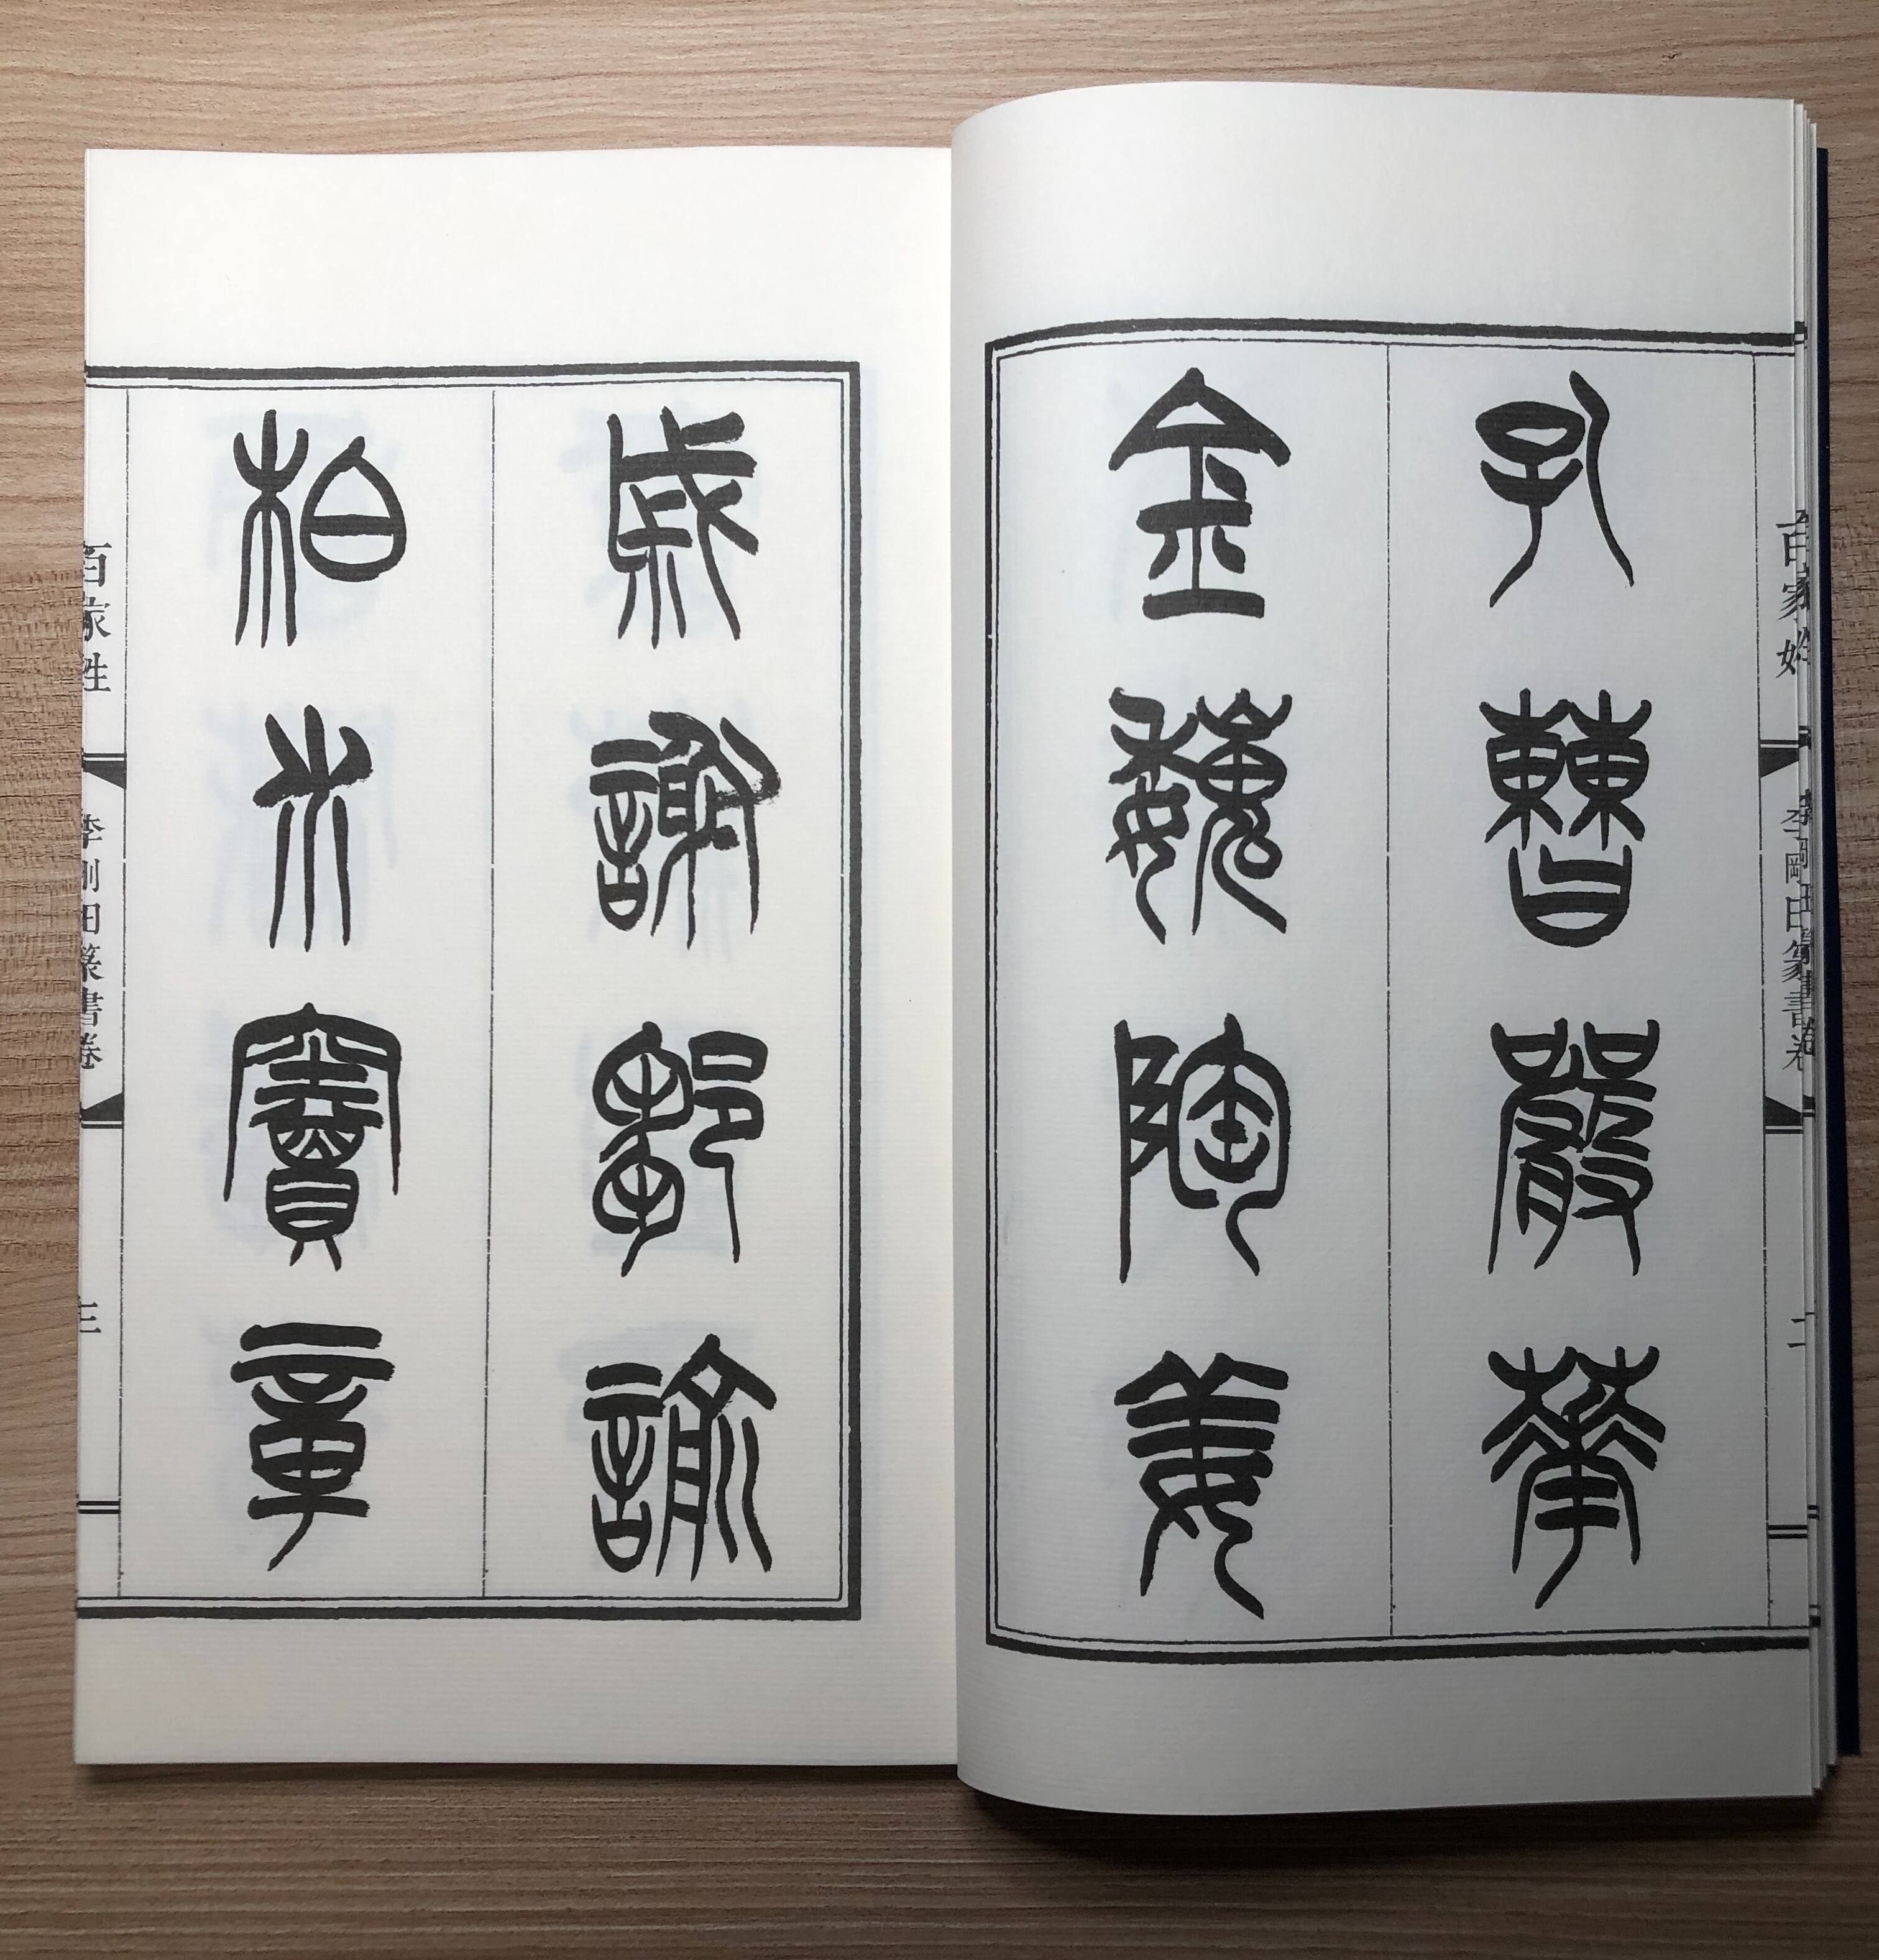 百家姓
李剛田篆書卷
二
孔曹嚴華
金魏陶姜
戚謝鄒諭
柏水竇章
百家姓
李剛田篆書卷
三